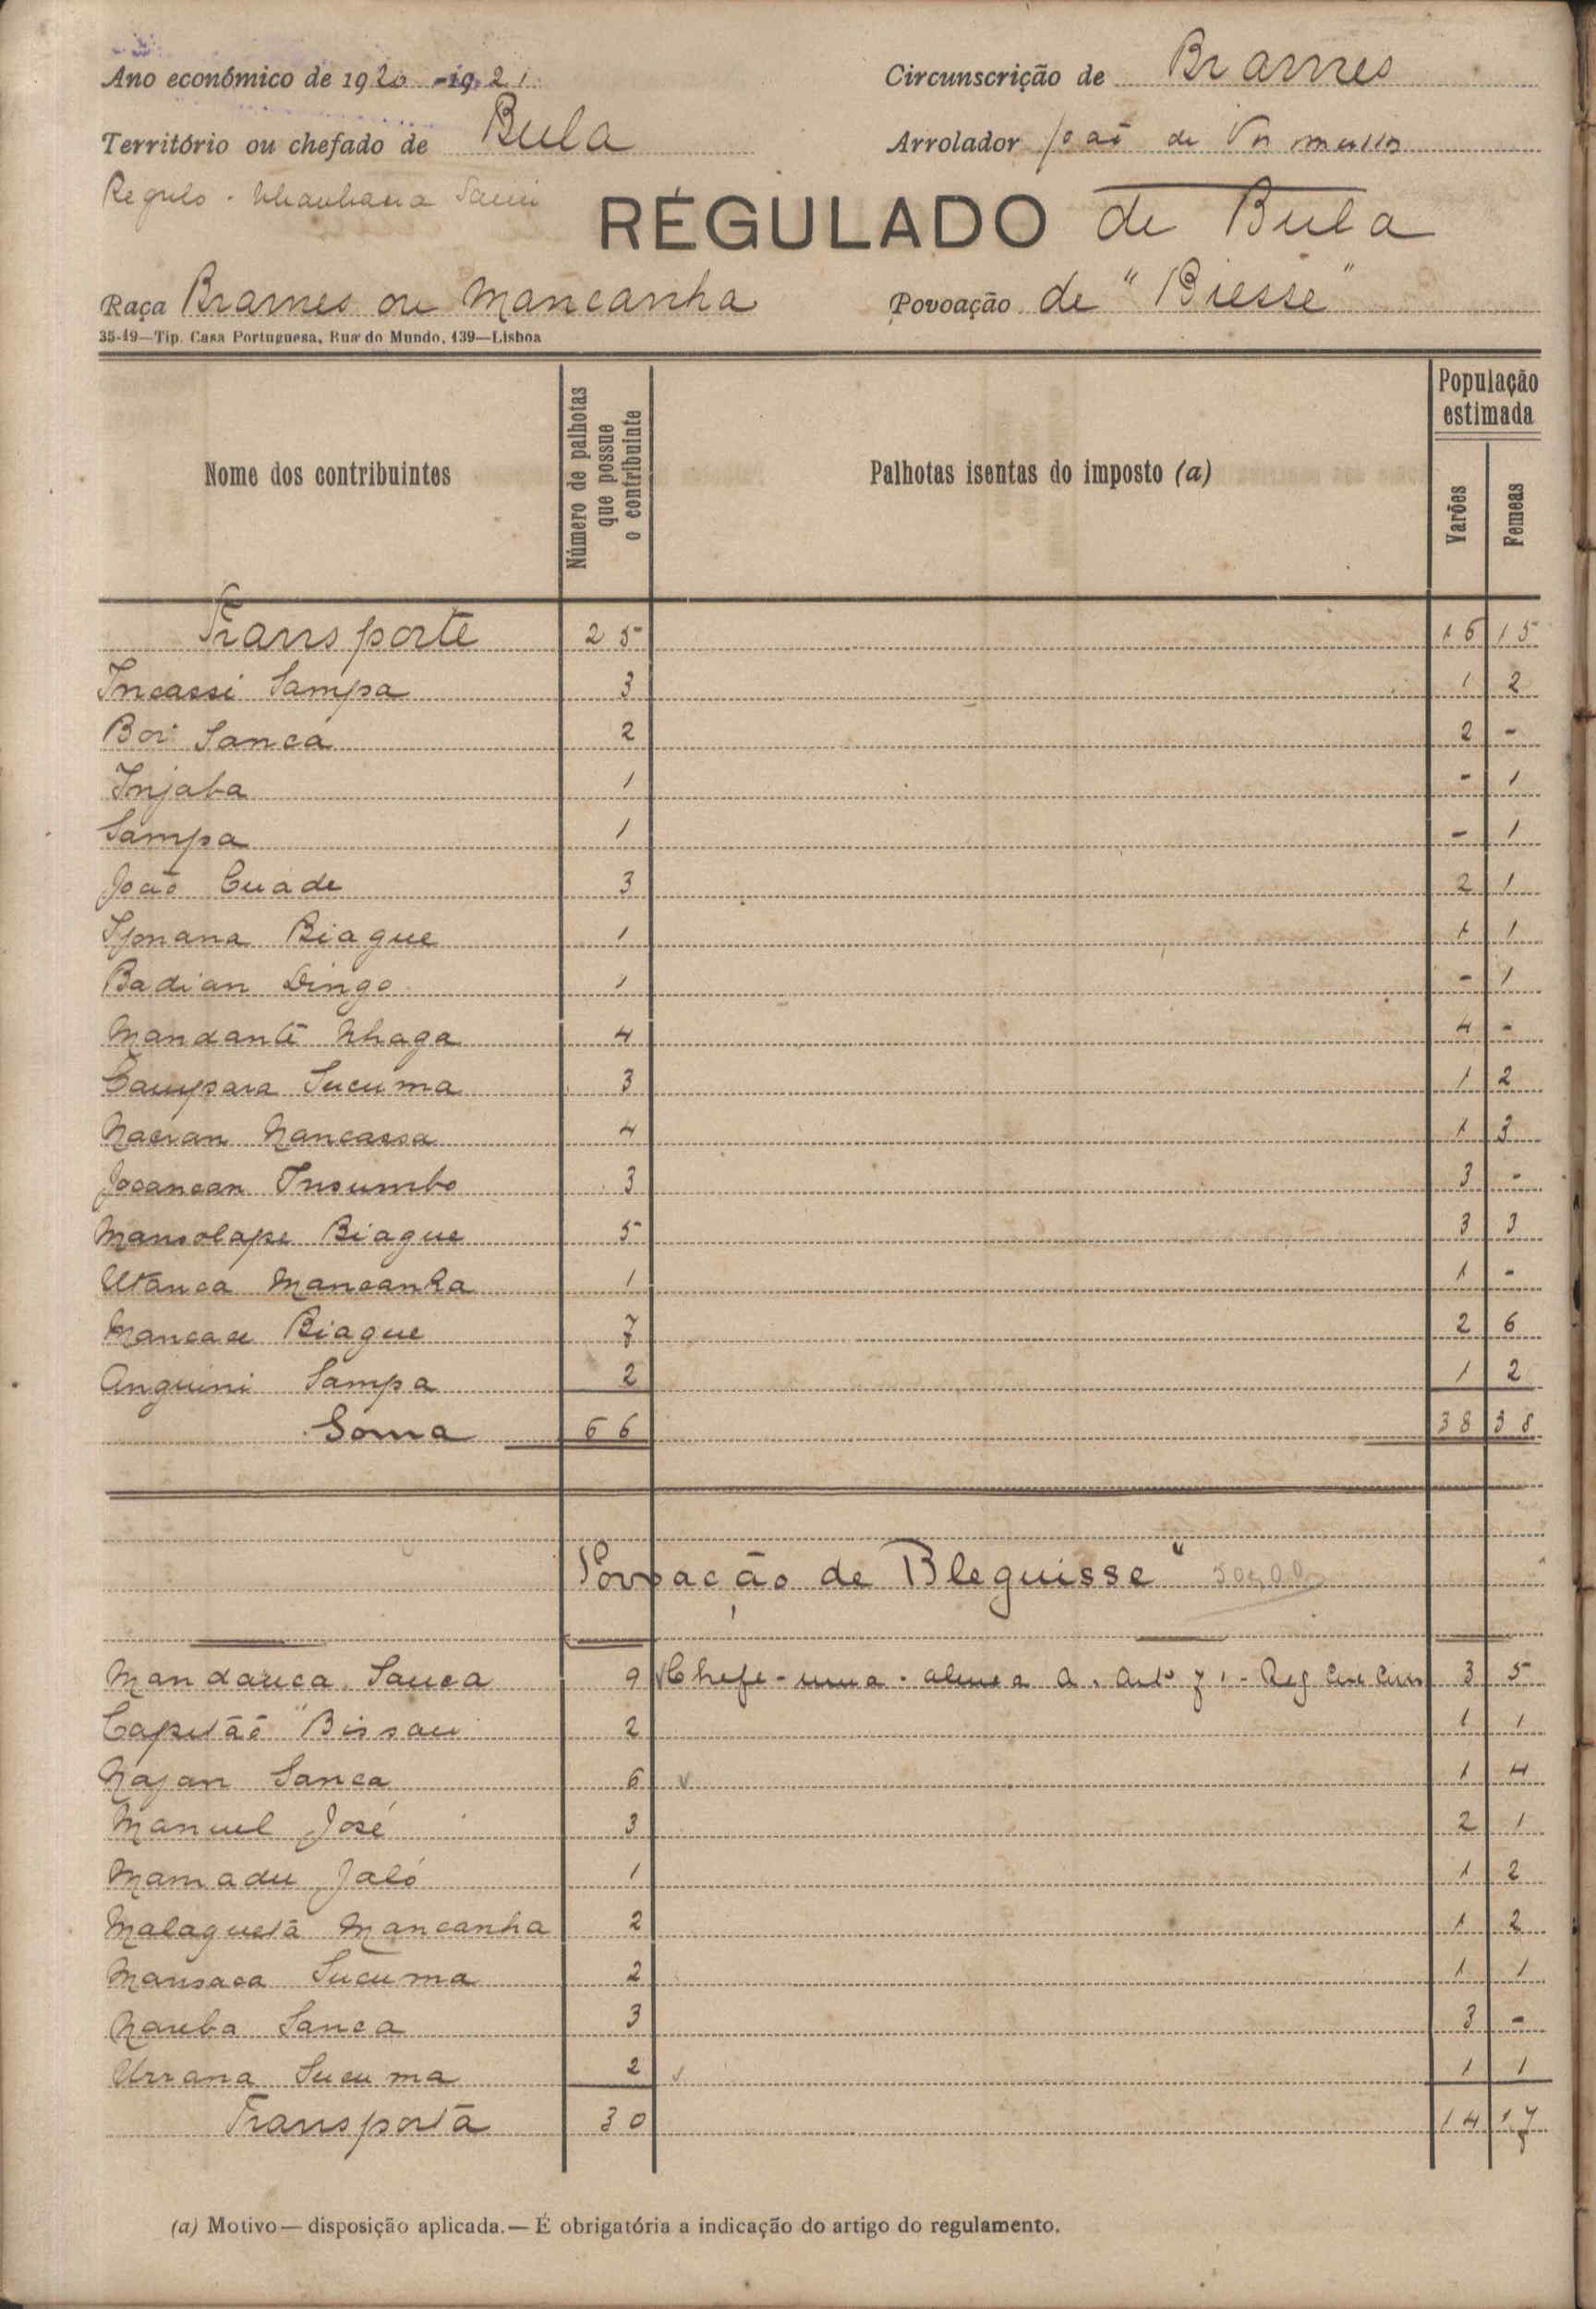 Ano económico de 1920-1921
Circunscrição de Brames
Território ou chefado de Bula
Arrolador João de
Regulo -
RÉGULADO de Bula
Raça Brames ou Mancanha
Povoação de "Biesse"
35-19—Tip. Casa Portuguesa, Rua do Mundo, 139—Lisboa
Nome dos contribuintes
Número de palhotas que possue o contribuinte
Palhotas isentas do imposto (a)
População estimada
Varões
Femeas
Transporte 25 16 15
Incassi Sampa 3 1 2
Boi Sanca 2 2 -
Injaba 1 - 1
Sampa 1 - 1
João Cuade 3 2 1
Biague 1 1 1
Badian Dingo 1 - 1
Mandante Nhaga 4 4 -
Campara Sucuma 3 1 2
Nacran Nancassa 4 1 3
Jocancan Insumbo 3 3 -
Mansolape Biague 5 3 3
Utanca Mancanha 1 1 -
Mancace Biague 7 2 6
Anguini Sampa 2 1 2
Soma 66 38 38
Povoação de Bleguisse"
Mandanca Sanca 9 Chefe - uma - alinea a. Artº 7º - Reg 3 5
Capitão Bissau 2 1 1
Najan Sanca 6 1 4
Manuel José 3 2 1
Mamadu Jaló 1 1 2
Malaguetá Mancanha 2 1 2
Mansaca Sucuma 2 1 1
Nareba Sanca 3 3 -
Urrana Sucuma 2 1 1
Transporta 30 14 17
(a) Motivo — disposição aplicada. — É obrigatória a indicação do artigo do regulamento.